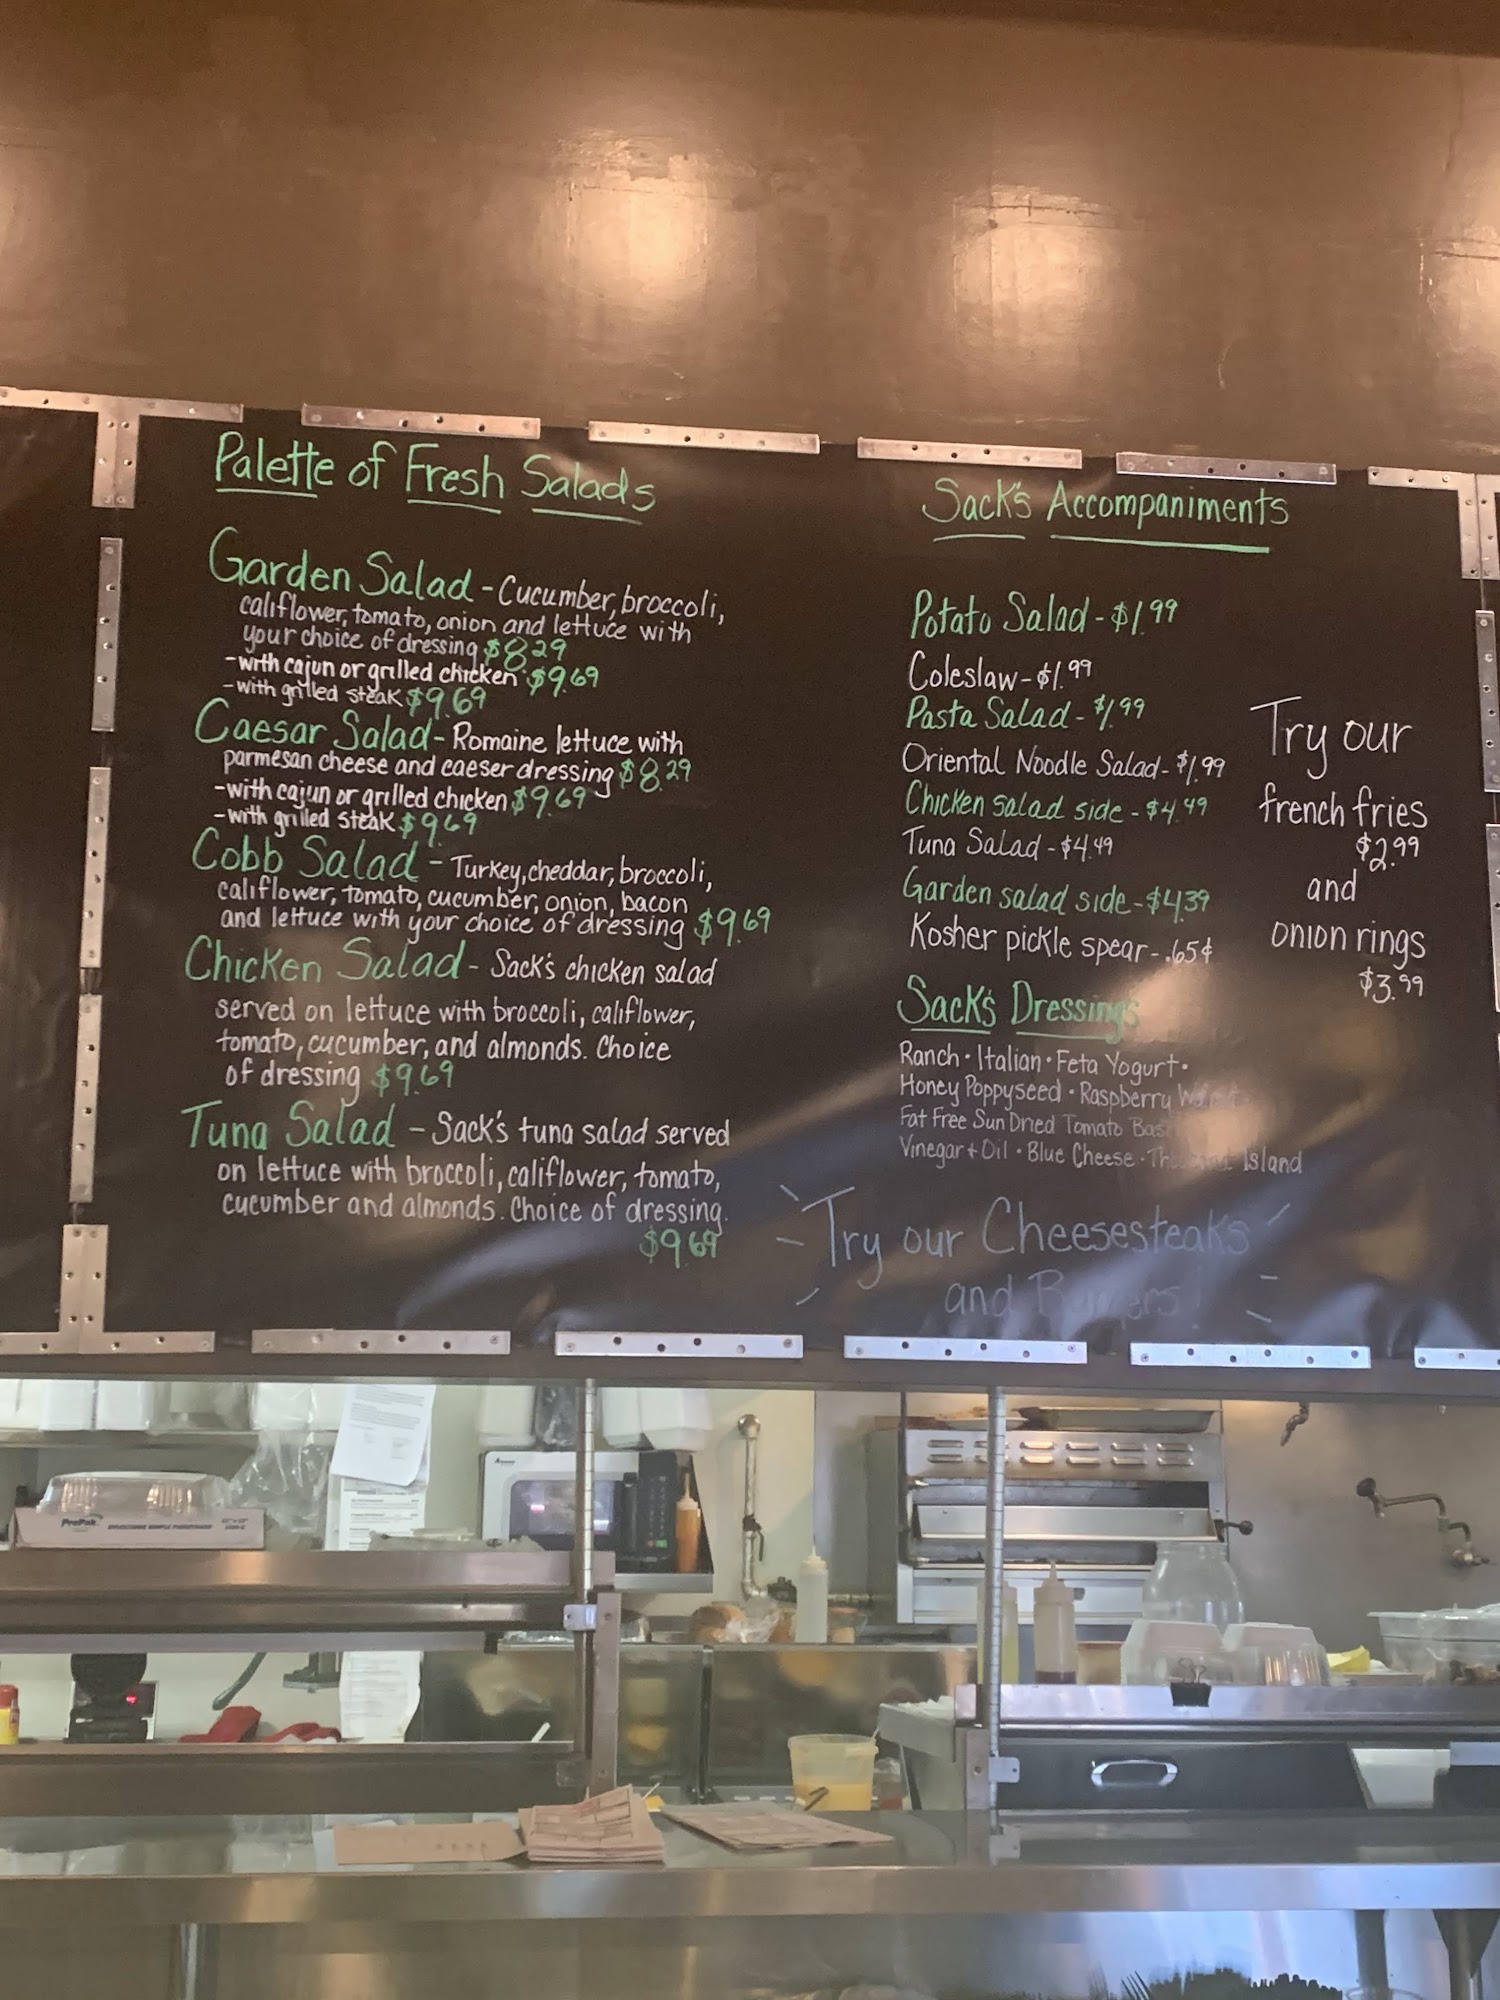 Palette of Fresh Salads
Garden Salad - Cucumber, broccoli,
califlower, tomato, onion and lettuce with
your choice of dressing $8.29
-with cajun or grilled chicken $9.69
-with grilled steak $9.69
Caesar Salad - Romaine lettuce with
parmesan cheese and caeser dressing $8.29
-with cajun or grilled chicken $9.69
-with grilled steak $9.69
Cobb Salad - Turkey, cheddar, broccoli,
califlower, tomato, cucumber, onion, bacon
and lettuce with your choice of dressing $9.69
Chicken Salad - Sack's chicken salad
served on lettuce with broccoli, califlower,
tomato, cucumber, and almonds. Choice
of dressing $9.69
Tuna Salad - Sack's tuna salad served
on lettuce with broccoli, califlower, tomato,
cucumber and almonds. Choice of dressing.
$9.69
Sack's Accompaniments
Potato Salad - $1.99
Coleslaw - $1.99
Pasta Salad - $1.99
Oriental Noodle Salad - $1.99
Chicken salad side - $4.49
Tuna Salad - $4.49
Garden salad side - $4.39
Kosher pickle spear - .65¢
Try our
french fries
$2.99
and
onion rings
$3.99
Sack's Dressings
Ranch • Italian • Feta Yogurt •
Honey Poppyseed • Raspberry
Fat Free Sun Dried Tomato
Vinegar + Oil • Blue Cheese • Thousand Island
Try our Cheesesteaks
and Burgers!
ProPak